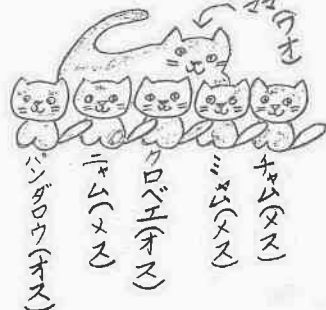 ママ
チャム(メス)
ミャム(メス)
クロベエ(オス)
ニャム(メス)
パンダロウ(オス)